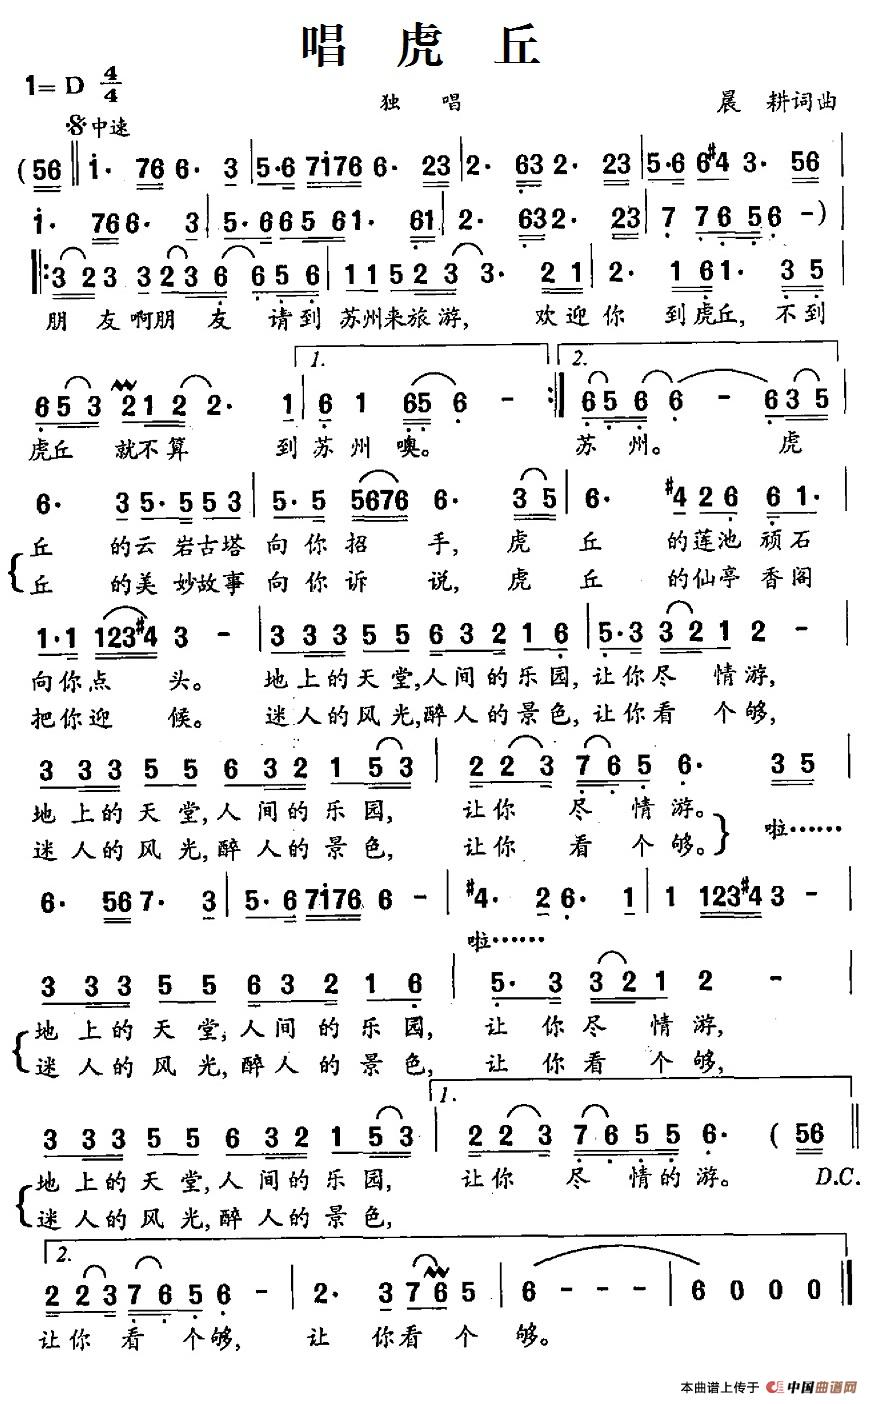 唱 虎 丘
1=D 4/4
独 唱
晨 耕词曲
中速
(56 ‖ i· 76 6· 3 | 5·6 7i76 6· 23 | 2· 63 2· 23 | 5·6 6#4 3· 56 |
i· 76 6· 3 | 5·6 65 61 1· 61 | 2· 63 2· 23 | 7 7 6 5 6 -) |
‖: 3 23 3 23 6 6 5 6 | 1 1 5 2 3 3· 2 1 | 2· 1 61· 3 5 |
朋 友啊朋 友 请到 苏州来旅游, 欢迎你 到虎丘, 不到
1. 2.
6 5 3 2 1 2 2· 1 | 6 1 65 6 - :‖ 6 5 6 6 - 6 3 5 |
虎丘 就不算 到苏州噢。 苏 州。 虎
6· 3 5· 5 5 3 | 5· 5 5676 6· 3 5 | 6· #4 2 6 6 1· |
丘 的云 岩古塔 向你招 手, 虎 丘 的莲池 顽石
丘 的美 妙故事 向你诉 说, 虎 丘 的仙亭 香阁
1·1 123#4 3 - | 3 3 3 5 5 6 3 2 1 6 | 5·3 3 2 1 2 - |
向你点 头。 地上的天堂,人间的乐园, 让你尽 情游,
把你迎 候。 迷人的风光,醉人的景色, 让你看 个够,
3 3 3 5 5 6 3 2 1 5 3 | 2 2 3 7 6 5 6· 3 5 |
地上的天堂,人间的乐园, 让你 尽 情游。 啦……
迷人的风光,醉人的景色, 让你 看 个够。
6· 56 7· 3 | 5· 6 7i76 6 - | #4· 2 6· 1 | 1 123#4 3 - |
啦……
3 3 3 5 5 6 3 2 1 6 | 5· 3 3 2 1 2 - |
地上的天堂,人间的乐园, 让 你尽 情游,
迷人的风光,醉人的景色, 让 你看 个够,
1.
3 3 3 5 5 6 3 2 1 5 3 | 2 2 3 7 6 5 5 6· (56 ‖
地上的天堂,人间的乐园, 让你 尽 情的游。 D.C.
迷人的风光,醉人的景色,
2.
2 2 3 7 6 5 6 - | 2· 3 7 6 5 | 6 - - - | 6 0 0 0 ‖
让你 看 个够, 让 你看 个 够。
本曲谱上传于 中国曲谱网